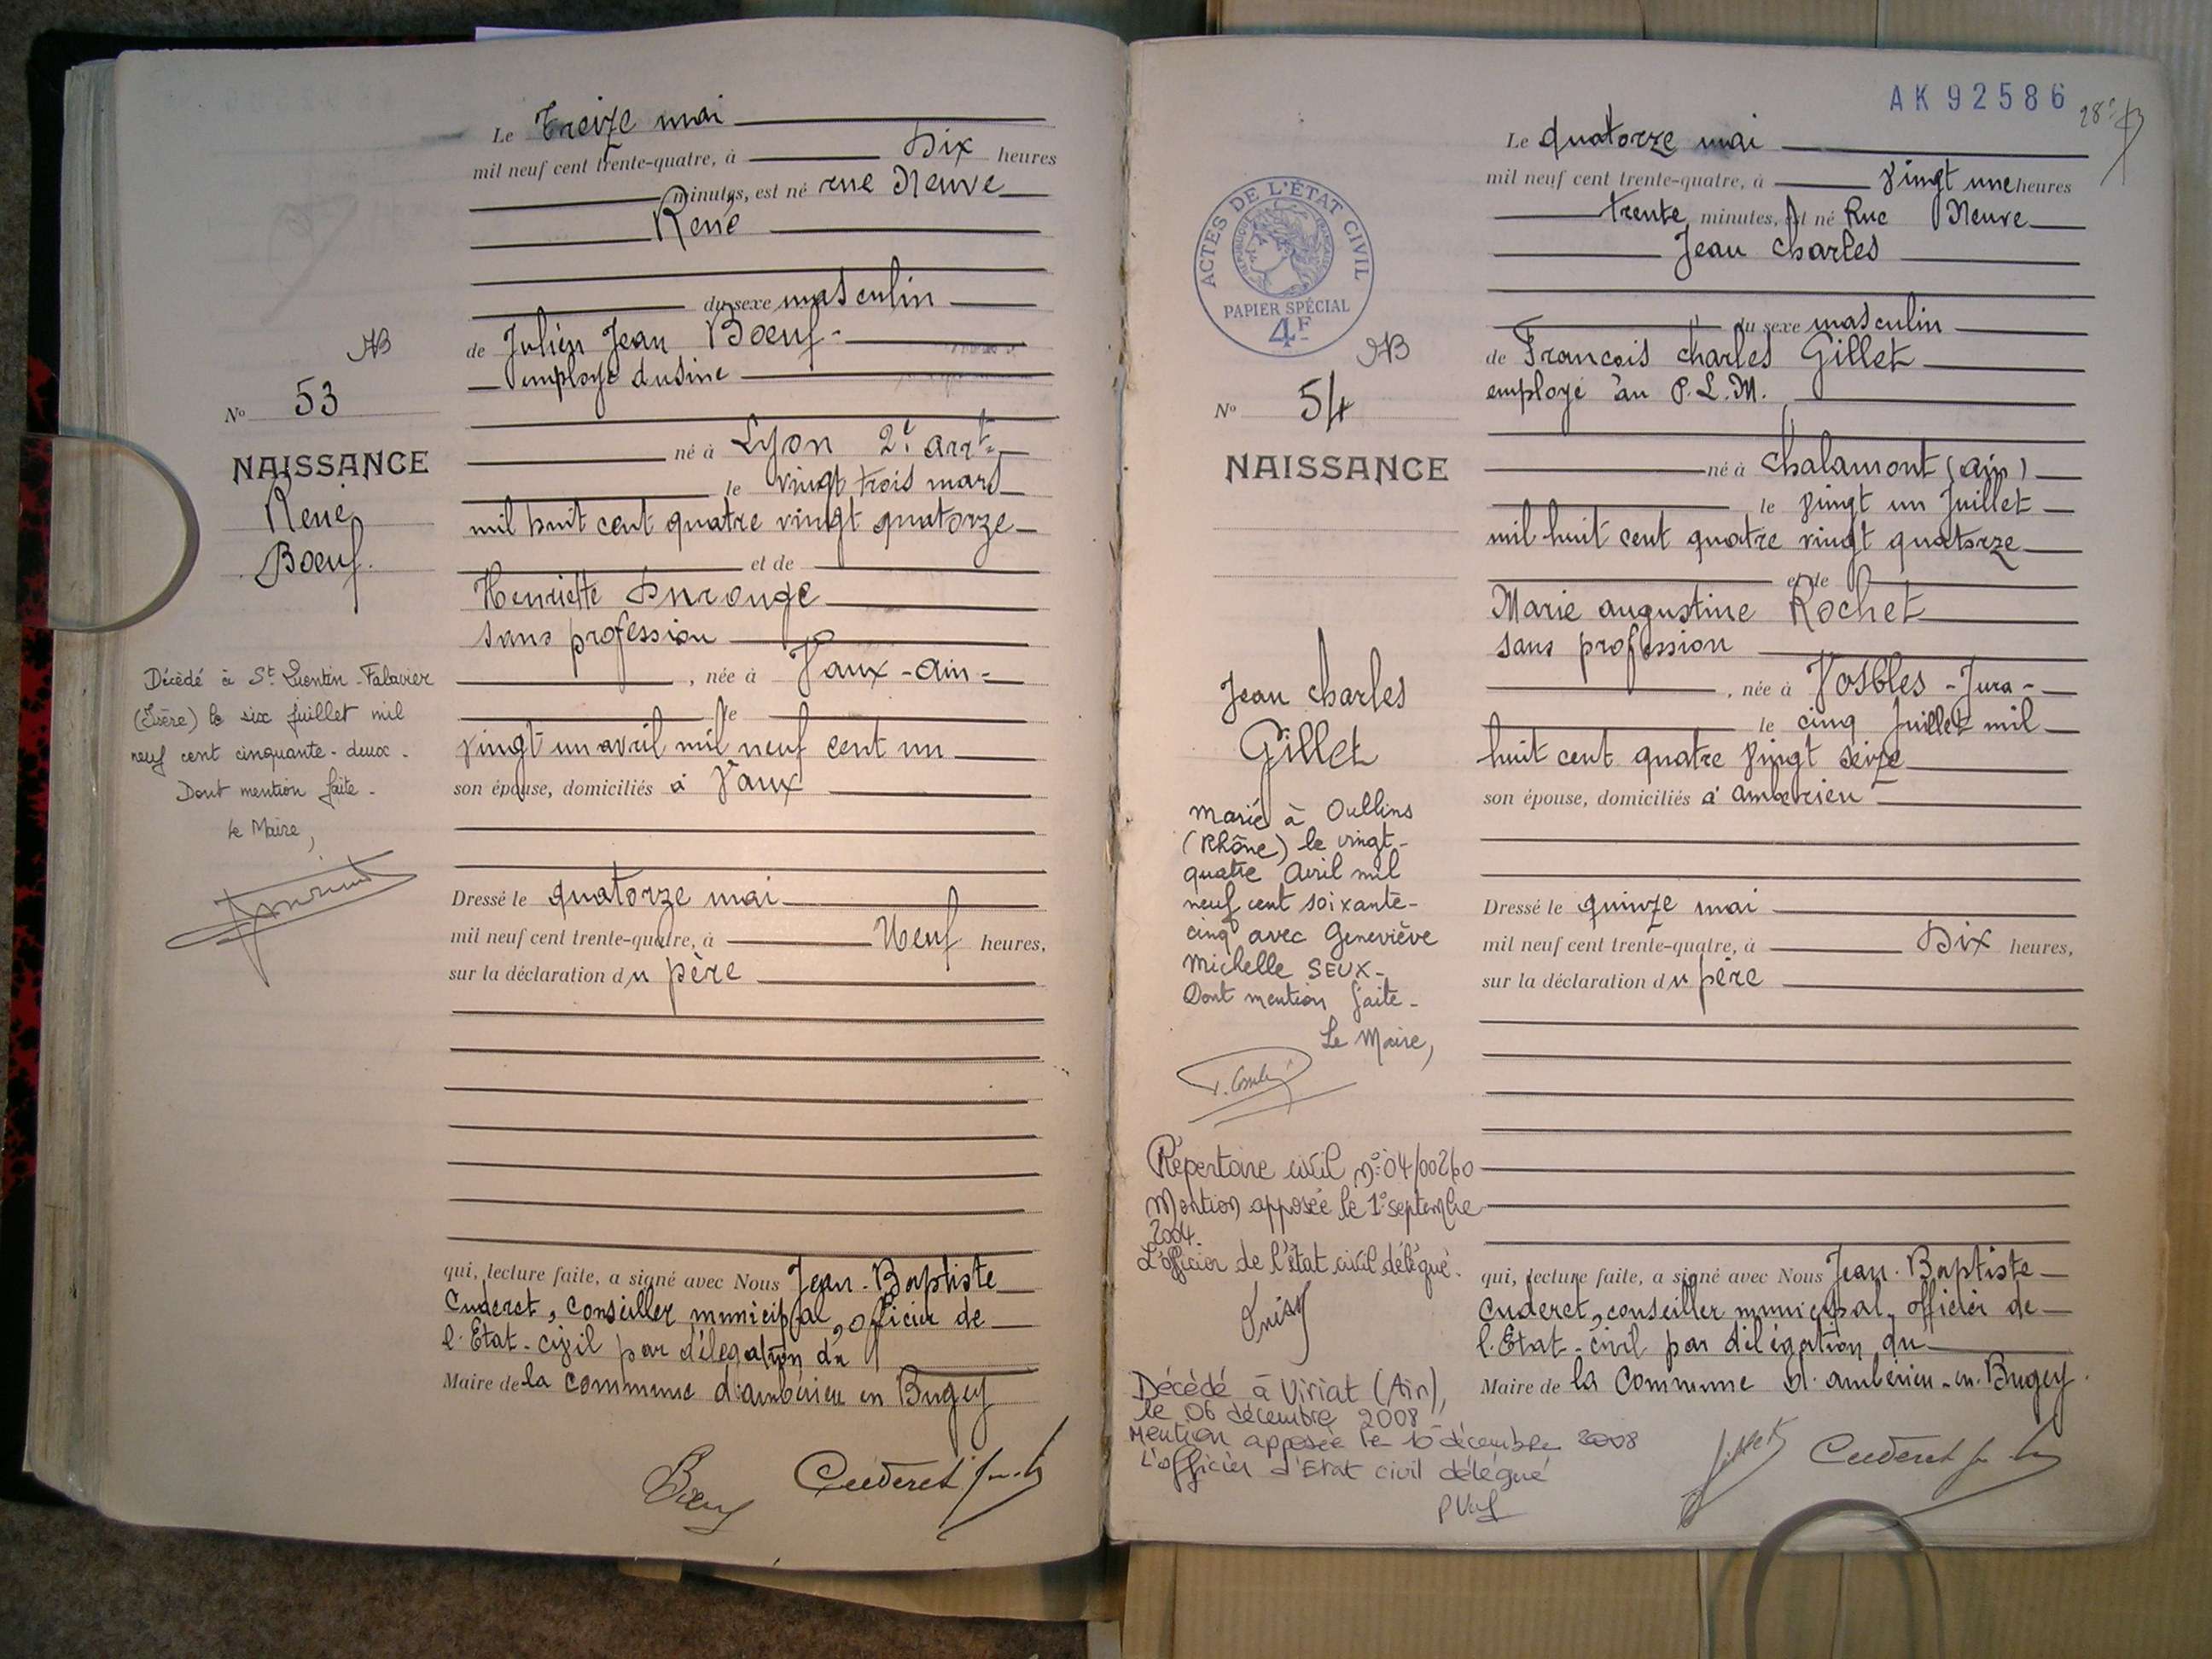 Le treize mai
mil neuf cent trente-quatre, à Dix heures
minutes, est né rue Neuve
René
du sexe masculin
de Julien Jean Boeuf
employé dusine
né à Lyon 2e arrt
le vingt trois mars
mil huit cent quatre vingt quatorze
et de
Henriette Durouge
sans profession
, née à Vaux - Ain -
le
vingt un avril mil neuf cent un
son épouse, domiciliés à Vaux
Dressé le quatorze mai
mil neuf cent trente-quatre, à Neuf heures,
sur la déclaration du père
qui, lecture faite, a signé avec Nous Jean-Baptiste
Cuderet, conseiller municipal, officier de
l'Etat-civil par délégation du
Maire de la commune d'ambérieu en Bugey
Boeuf Cuderet
AB
No 53
NAISSANCE
René
Boeuf.
Décédé à St Quentin-Falavier
(Isère) le six juillet mil
neuf cent cinquante-deux.
Dont mention faite.
Le Maire,
AK 92586
28e
Le quatorze mai
mil neuf cent trente-quatre, à vingt une heures
trente minutes, est né Rue Neuve
Jean Charles
du sexe masculin
de Francois charles Gillet
employé au P.L.M.
né à Chalamont (ain)
le vingt un Juillet
mil huit cent quatre vingt quatorze
et de
Marie augustine Rochet
sans profession
, née à Vosbles - Jura -
le cinq juillet mil
huit cent quatre vingt seize
son épouse, domiciliés à ambérieu
Dressé le quinze mai
mil neuf cent trente-quatre, à Dix heures,
sur la déclaration du père
qui, lecture faite, a signé avec Nous Jean-Baptiste
Cuderet, conseiller municipal, officier de
l'Etat-civil par délégation du
Maire de la Commune d'ambérieu-en-Bugey.
Gillet Cuderet
ACTES DE L'ÉTAT CIVIL
RÉPUBLIQUE FRANÇAISE
PAPIER SPÉCIAL
4F
AB
No 54
NAISSANCE
Jean Charles
Gillet
Marié à Oullins
(Rhône) le vingt-
quatre Avril mil
neuf cent soixante-
cinq avec Geneviève
Michelle SEUX-
Dont mention faite-
Le Maire,
Répertoire civil n° 04/00260
Mention apposée le 1° septembre
2004.
L'officier de l'état civil délégué.
Décédé à Viriat (Ain),
le 06 décembre 2008
Mention apposée le 10 décembre 2008
L'officier d'Etat civil délégué